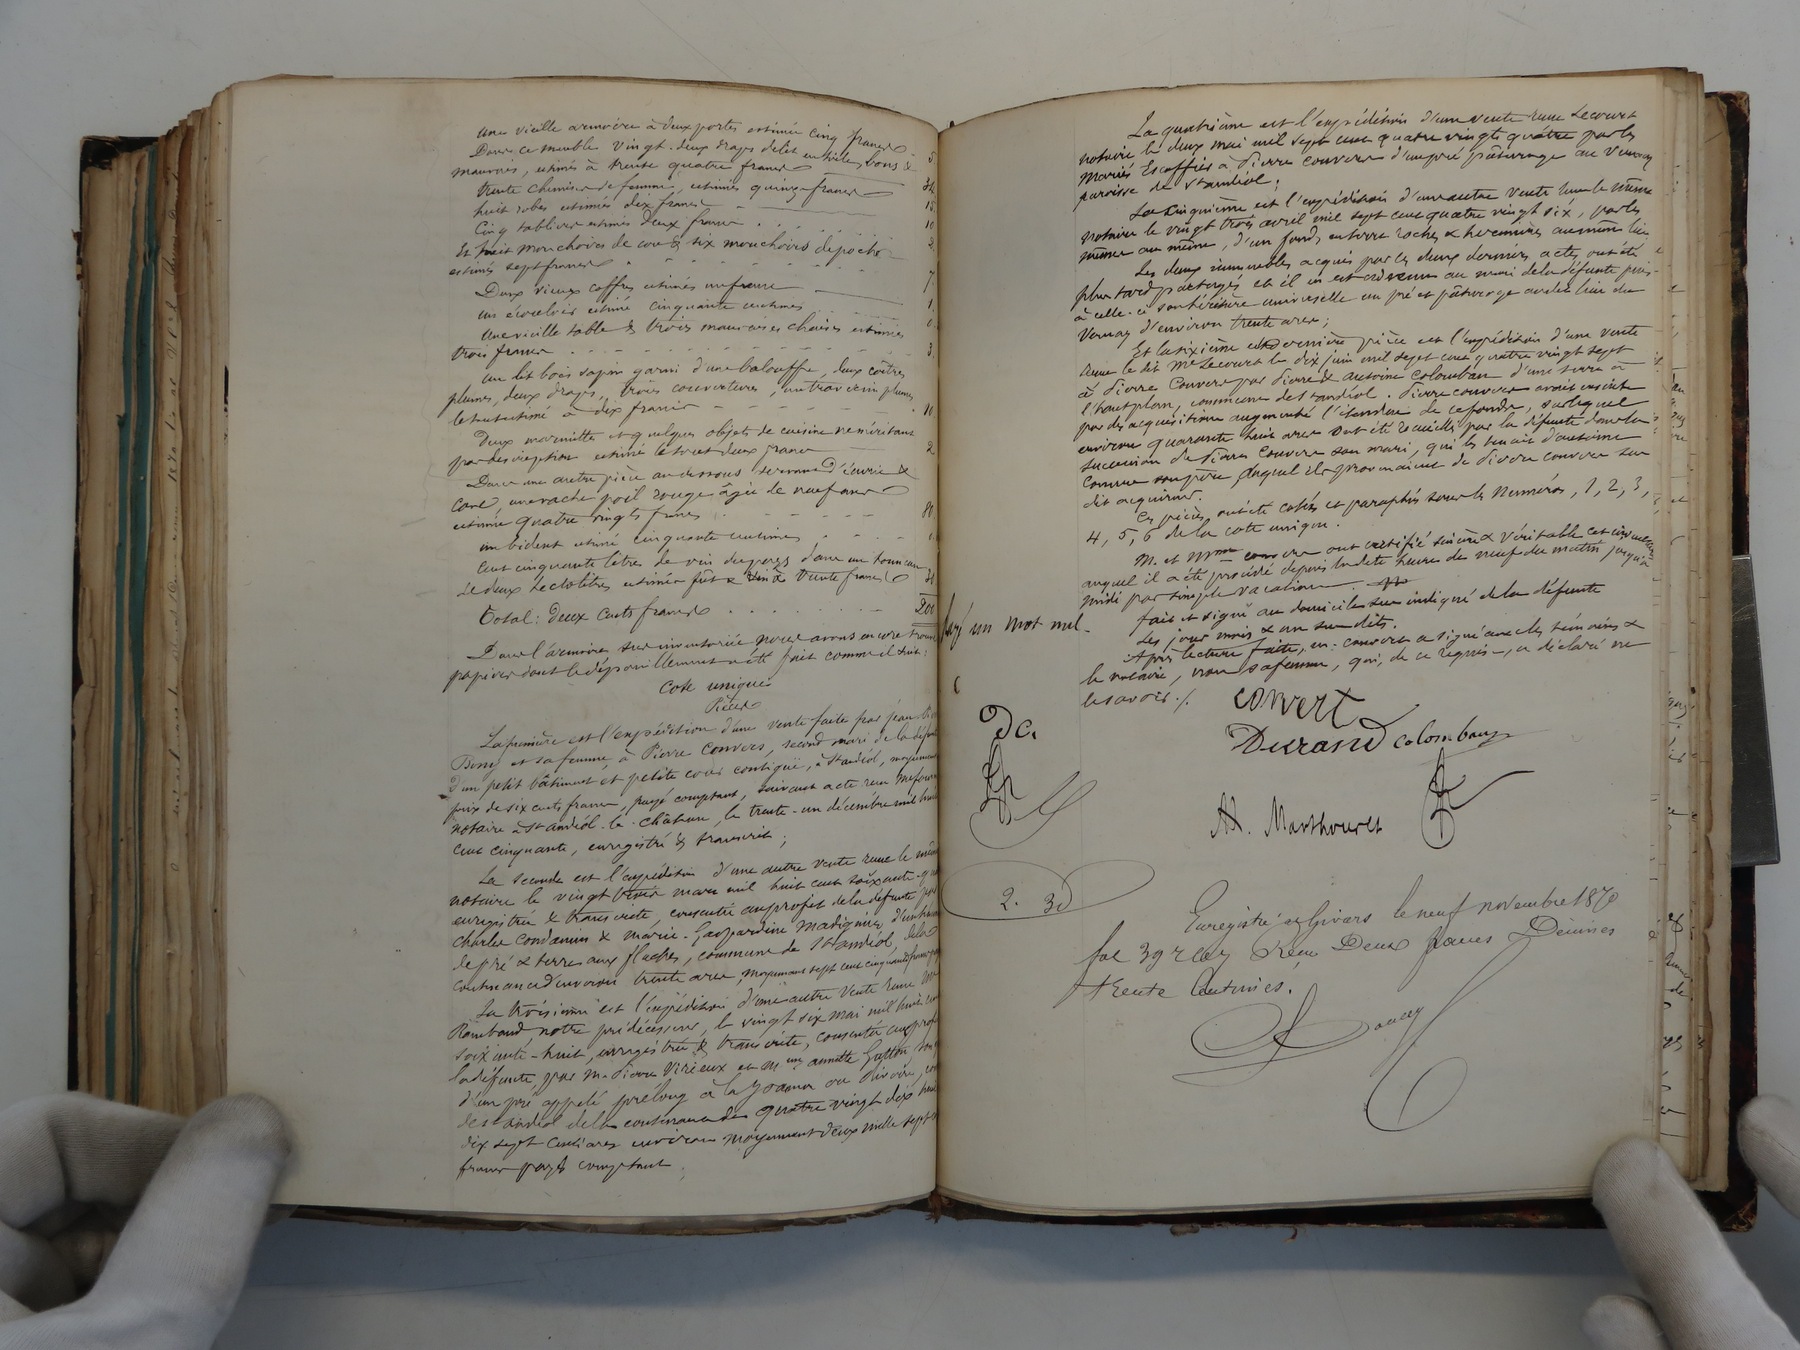 une vieille armoire à deux portes estimée cinq francs 5.
Dans ce meuble vingt-deux draps de lit en toile, bons &
mauvais, estimés à trente quatre francs 34
trente chemises de femme, estimées quinze francs 15
huit robes estimées dix francs 10
Cinq tabliers estimés deux francs 2.
Et huit mouchoirs de cou & six mouchoirs de poche
estimés sept francs 7.
Deux vieux coffres estimés un franc 1.
un écouloir estimé cinquante centimes
une vieille table & trois mauvaises chaises estimées
trois francs 3.
un lit bois sapin garni d'une balouffe, deux coëtres
plumes, deux draps, trois couvertures, un traversin plumes
le tout estimé à dix francs 10
Deux marmittes et quelques objets de cuisine ne méritant
pas description estimé le tout deux francs 2
Dans une autre pièce au dessous servant d'écurie &
cave une vache poil rouge âgée de neuf ans
estimée quatre vingts francs 80
un bident estimé cinquante centimes
Cent cinquante litres de vin du pays dans un tonneau
de deux hectolitres estimés fût & vin à trente francs 30
Total: Deux cents francs 200
Dans l'armoire sus inventoriée nous avons encore trouvé
papiers dont le dépouillement a été fait comme il suit:
Cote unique
Pièces
La première est l'expédition d'une vente faite par Jean
Bony et sa femme, à Pierre Convers, second mari de la défunte
d'un petit bâtiment et petite cour contiguë, à St andéol, moyennant
prix de six cents francs, payé comptant, suivant acte reçu Me
notaire à St andéol-le-château, le trente-un décembre mil huit
cent cinquante, enregistré & transcrit;
La seconde est l'expédition d'une autre vente reçue le même
notaire le vingt trois mars mil huit cent soixante
enregistrée & transcrite, consentie au profit de la défunte par
Charles Condamin & Marie-Gaspardine Matignier, d'un
de pré & terre aux flaches, commune de St andéol, de la
contenance d'environ trente ares, moyennant sept cent cinquante francs
La troisième est l'expédition d'une autre vente reçue Me
Rambaud notre prédécesseur, le vingt six mai mil huit cent
soixante-huit, enregistrée & transcrite, consentie au profit
de la défunte, par M. Pierre Virieux et Mme annette Gutton,
d'un pré appelé pré long à la
de St andéol de la contenance de quatre vingt dix
dix sept centiares environ moyennant deux mille sept
francs payés comptant.
La quatrième est l'expédition d'une vente reçue Lecourt
notaire le deux mai mil sept cent quatre vingt quatre par les
mariés Escoffier à Pierre Convers d'un pré pâturage au Vernay
paroisse de St andéol;
La cinquième est l'expédition d'une autre vente reçue le même
notaire le vingt trois avril mil sept cent quatre vingt six, par les
mêmes au même, d'un fonds en terre roches & hermures au même lieu
Les deux immeubles acquis par les deux derniers actes ont été
plus tard partagés et il en est advenu au mari de la défunte puis
à celle-ci son héritière universelle un pré et pâturage au dit lieu du
Vernay d'environ trente ares;
Et la sixième et dernière pièce est l'expédition d'une vente
reçue le dit Me Lecourt le dix juin mil sept cent quatre vingt sept
à Pierre Convers par Pierre & antoine Colomban d'une terre à
l'haut plan, commune de St andéol. Pierre Convers avait ensuite
par des acquisitions augmenté l'étendue de ce fonds, sur lequel
environ quarante huit ares ont été recueillis par la défunte dans la
succession de Pierre Convers son mari, qui les tenait d'antoine
Convers son père auquel ils provenaient de Pierre Convers sus
dit acquéreur.
Ces pièces ont été cotées et paraphées sous les numéros, 1, 2, 3,
4, 5, 6 de la cote unique.
M. et Mme Convers ont certifié sincère & véritable cet inventaire
auquel il a été procédé depuis la dite heure de neuf du matin jusqu'à
midi par simple vacation.
fait et signé au domicile sus indiqué de la défunte
Les jour mois & an sus dits.
Après lecture faite, M. Convert a signé avec les témoins &
le notaire, non sa femme, qui, de ce requise, a déclaré ne
le savoir./.
Rayé un mot nul.
Dc.
convert
Durand colomban
M. Manthouret
2. 30
Enregistré à Givors le neuf novembre 1870
fol 39 r Reçu Deux francs Décimes
trente Centimes.